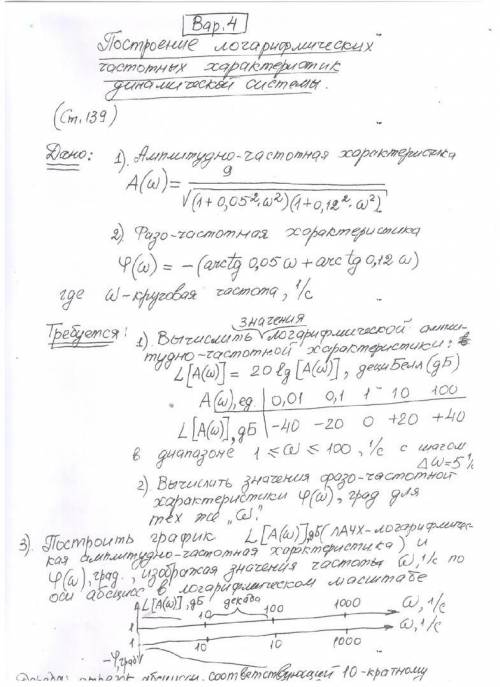 Вар. 4
Построение логарифмических
частотных характеристик
динамической системы.
(Ст. 139)
Дано: 1). Амплитудно-частотная характеристика
A(ω) = 9 / √(1+0,05²·ω²)(1+0,12²·ω²)
2). Фазо-частотная характеристика
φ(ω) = −(arctg 0,05ω + arctg 0,12ω)
где ω-круговая частота, 1/с
значения
Требуется: 1). Вычислить логарифмической ампли-
тудно-частотной характеристики:
L[A(ω)] = 20 lg [A(ω)], дециБелл (дБ)
A(ω), ед 0,01 0,1 1 10 100
L[A(ω)], дБ −40 −20 0 +20 +40
в диапазоне 1 ≤ ω ≤ 100, 1/с с шагом
Δω=5 1/с
2). Вычислить значения фазо-частотной
характеристики φ(ω), град для
тех же "ω".
3). Построить график L[A(ω)], дБ (ЛАЧХ-логарифмичес-
кая амплитудно-частотная характеристика) и
φ(ω), град., изображая значения частоты ω, 1/с по
оси абсцисс в логарифмическом масштабе
L[A(ω)], дБ декада
1 10 100 1000 ω, 1/с
1 10 10 1000 ω, 1/с
−φ, град
Декада: отрезок абсцисс, соответствующий 10-кратному